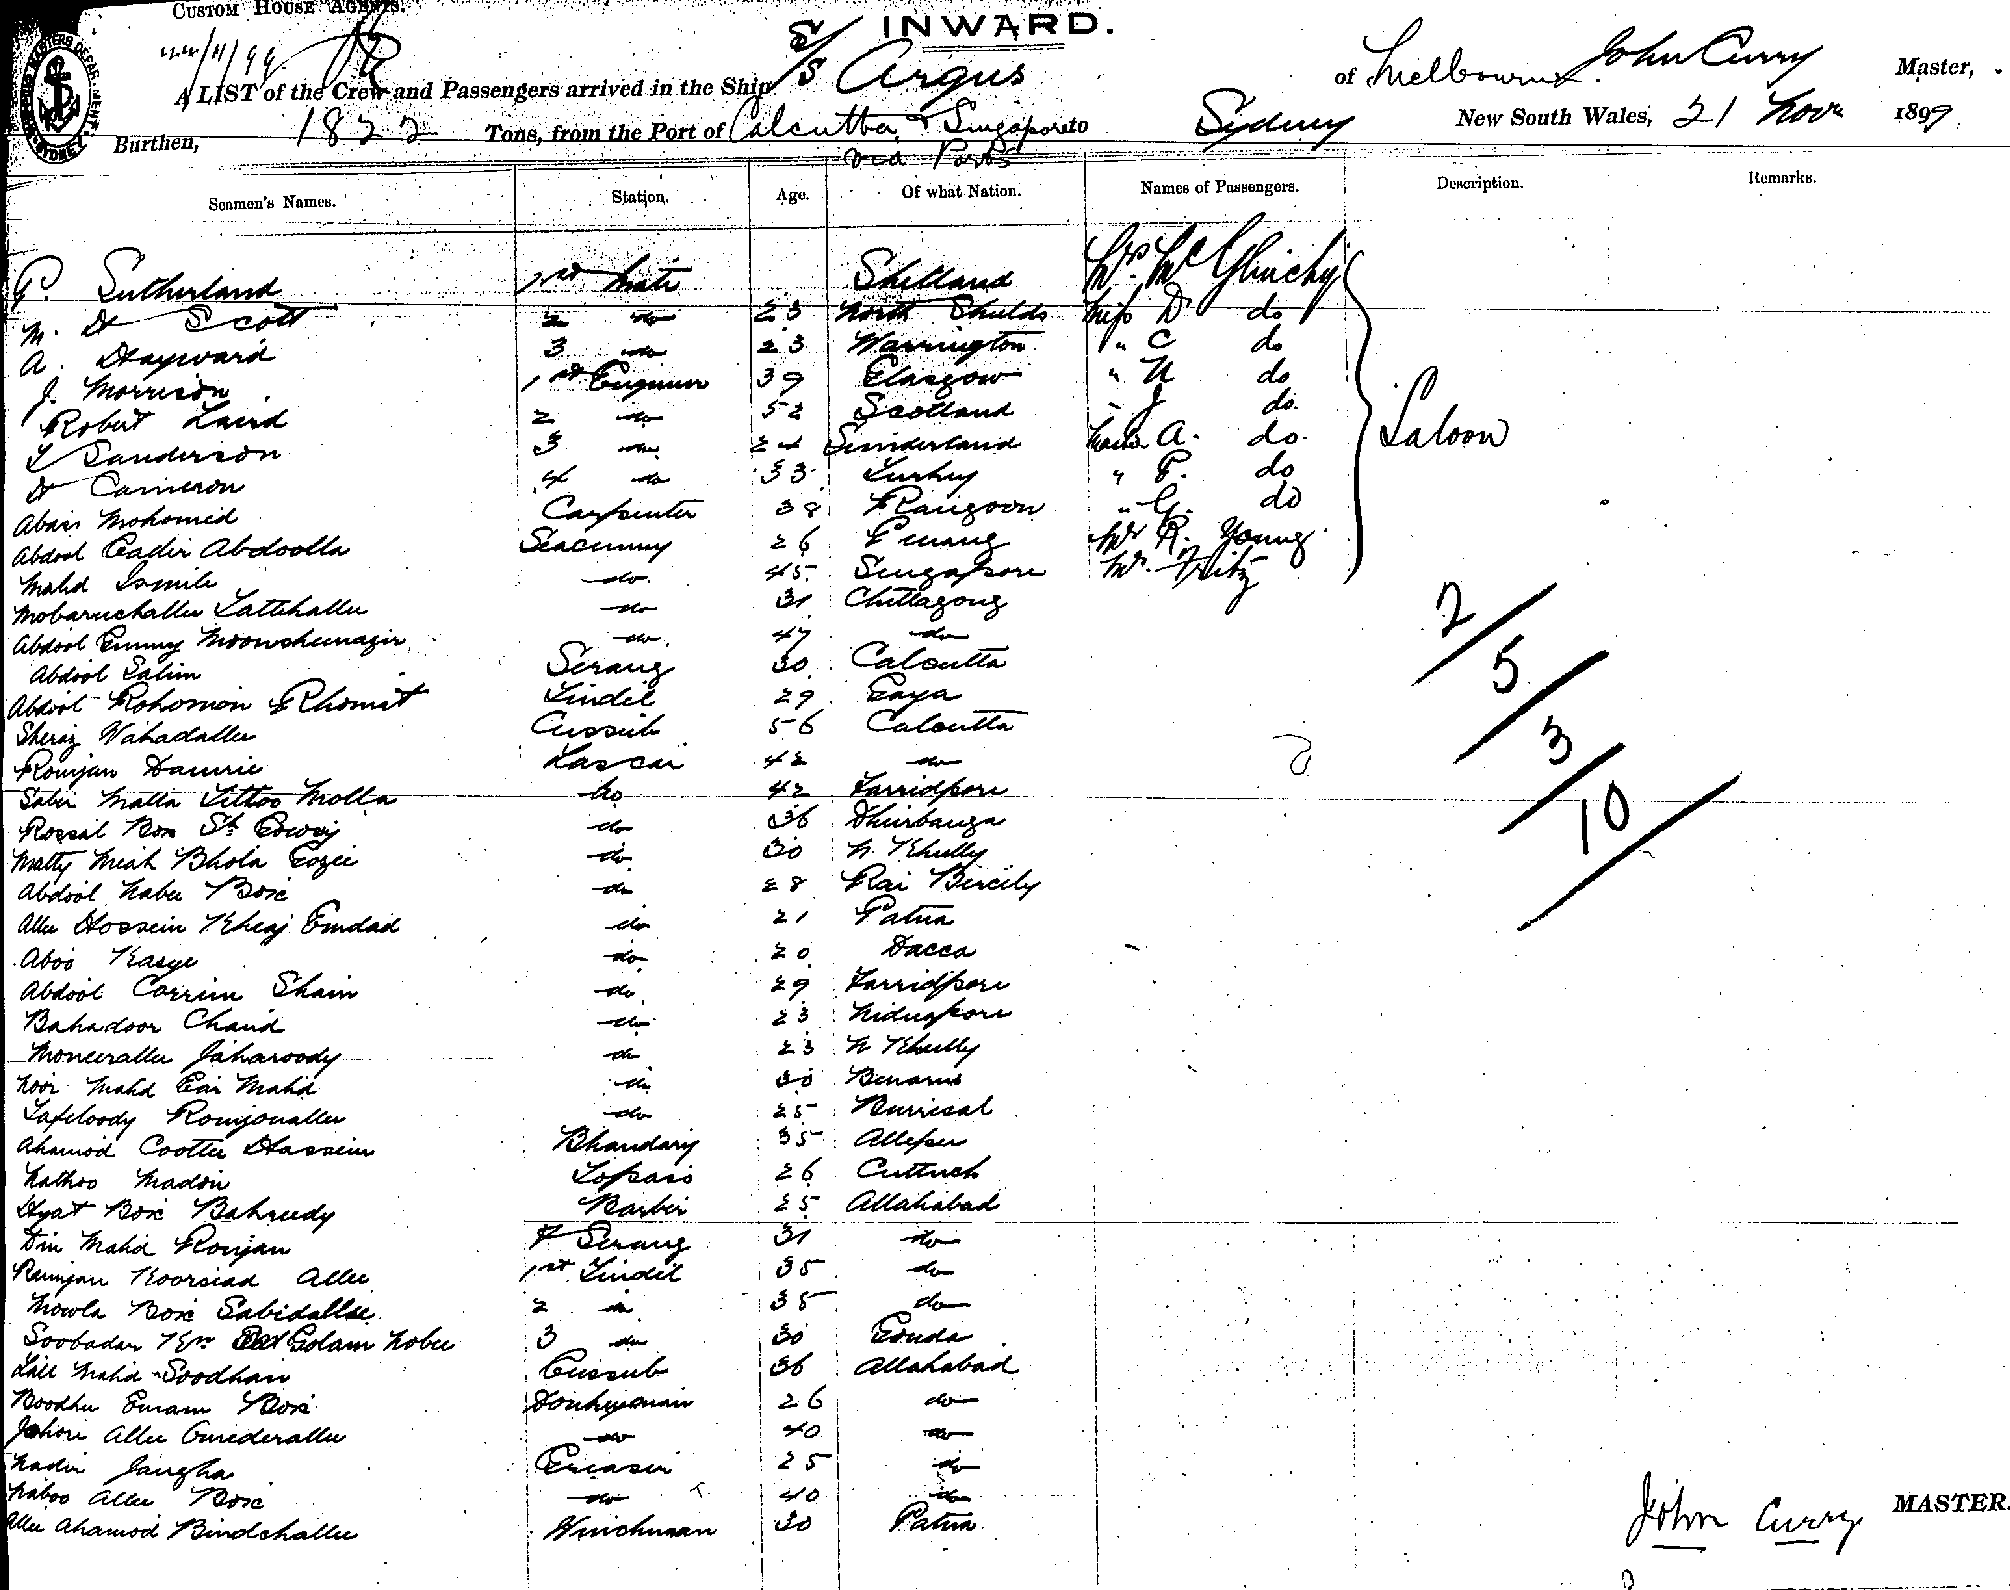 CUSTOM HOUSE AGENTS.
INWARD.
22/11/99
A LIST of the Crew and Passengers arrived in the Ship S/S Argus of Melbourne John Curry Master,
Burthen, 1822 Tons, from the Port of Calcutta & Singapore to Sydney New South Wales, 21 Novr 1899
via Ports
Seamen's Names. Station. Age. Of what Nation. Names of Passengers. Description. Remarks.
G. Sutherland 1st Mate Shetland Mrs. McGlinchy
M. H Scott 2 do 23 North Shields Miss D do
A. Hayward 3 do 23 Warrington " C do
J. Morrison 1st Engineer 39 Glasgow " N do
Robert Laird 2 do 52 Scotland " J do.
T Sanderson 3 do 24 Sunderland A. do. Saloon
H Cameron 4 do 33 Turkey " P. do
Abass Mohomed Carpenter 38 Rangoon " G. do
Abdool Cadir Abdoolla Seacunny 26 Penang Mr R. Young
Mahd Ismile do 45 Singapore Mr. Fritz
Mobaruckallee Lattehallee do 31 Chittagong
Abdool Gunny Moonsheenagir do 47 do
Abdool Salim Serang 30 Calcutta
Abdool Rohomon Rhomat Tindil 29 Gaya
Sheraz Wahadallee Cussub 56 Calcutta
Romjan Damrie Lascar 42 do
Sabir Malla Tittoo Molla do 42 Farridpore
Rossal Box Sk Gowry do 36 Dhurbanga
Matty Miah Bhola Gazie do 30 N. Khully
Abdool Nabee Box do 28 Rai Bireily
Allee Hossein Kheaj Emdad do 21 Patna
Aboo Kasye do 20 Dacca
Abdool Corrim Shain do 29 Farridpore
Bahadoor Chand do 23 Midnapore
Moneerallee Jaharoody do 23 N Khully
Noor Mahd Cai Mahd do 30 Benares
Tafeloody Romjonallee do 25 Burrisal
Ahamod Cootee Hassein Bhandary 35 Allepee
Nathoo Madon Topass 26 Cuttuck
Hyat Box Bahreedy Barber 25 Allahabad
Din Mahd Romjan F Serang 31 do
Ramjan Koorsiad Allee 1st Tindil 35 do
Mowla Box Sabidallee 2 do 35 do
Soobadar Kn Golam Nobee 3 do 30 Gonda
Lall Mahd Soodhan Cussub 36 Allahabad
Boodhu Emam Box Donkeyman 26 do
Johore Allee Omederallee do 40 do
Nadir Jangha Greaser 25 do
Naboo Allee Box do 40 do
Allee Ahamod Bindehallee Winchman 30 Patna
2/
5/
3/
10/
John Curry MASTER.